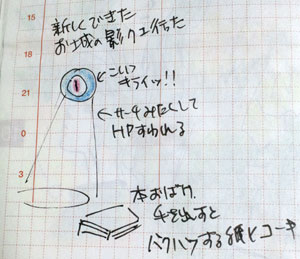 新しくできた
お城の影クエ行った
15
18
21
0
3
←こいつ
キライッ!!
←サークみたくして
HPすわれる
本おばけ。
手を出すと
バクハツする紙とコーキ